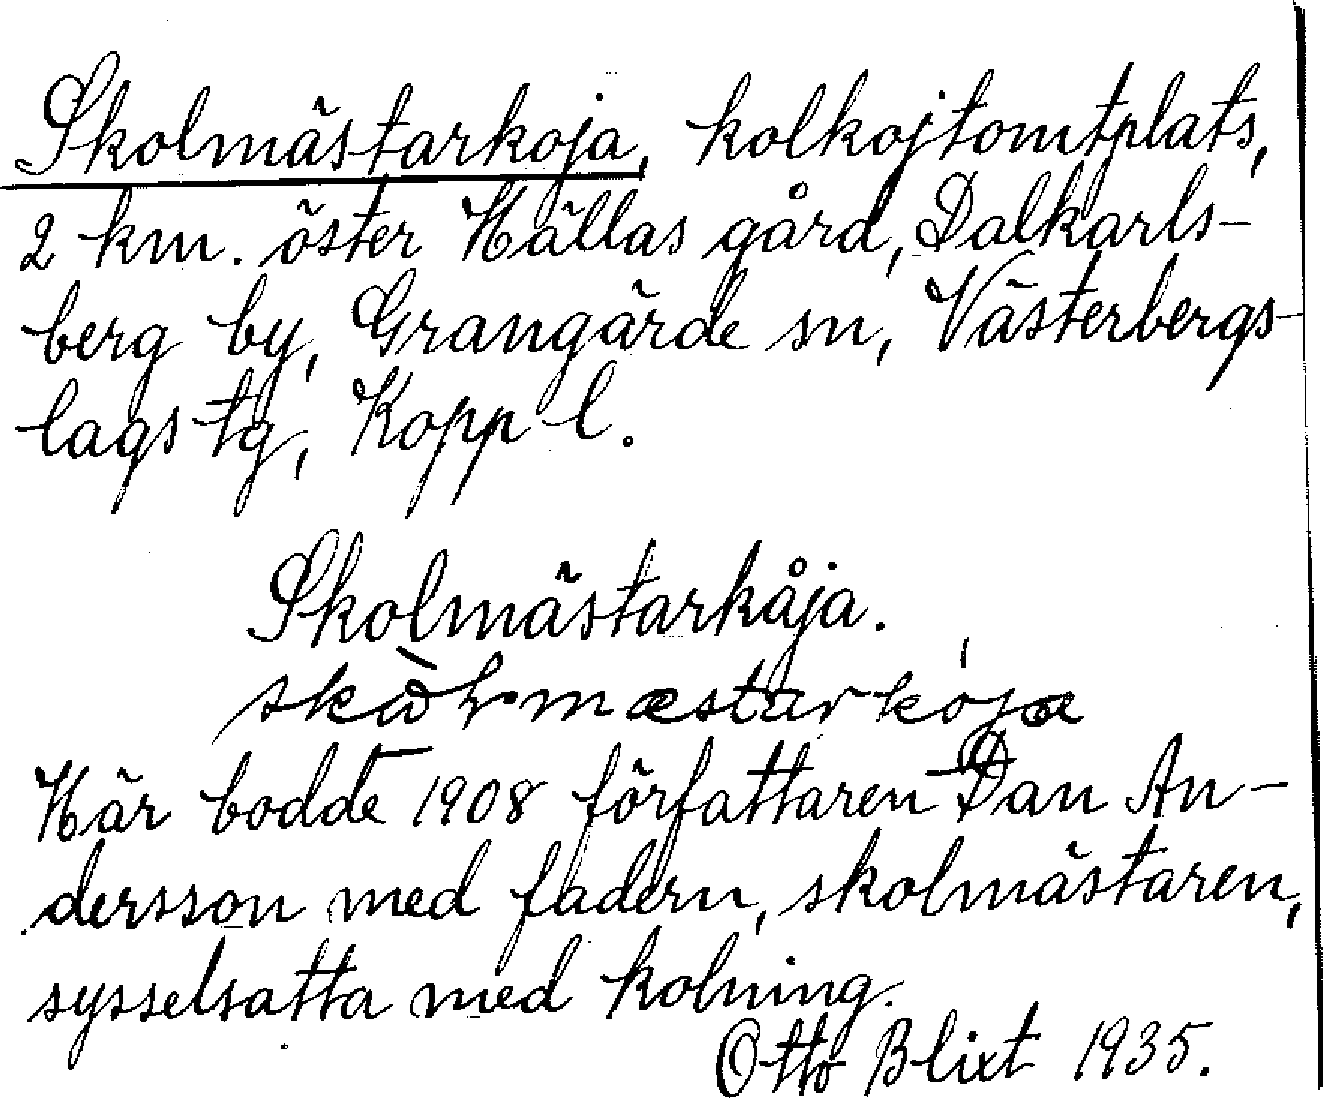 Skolmästarkoja, kolkojtomtplats,
2 km. öster Hällas gård, Dalkarls-
berg by, Grangärde sn, Västerbergs-
lags tg, Kopp l.
Skolmästarkåja.
Här bodde 1908 författaren Dan An-
dersson med fadern, skolmästaren,
sysselsatta med kolning.
Otto Blixt 1935.